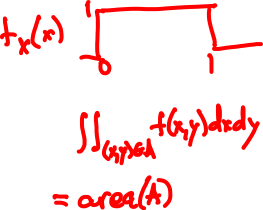 f_X(x)
1
0
1
∬_{(x,y)∈A} f(x,y)dxdy
= area(A)